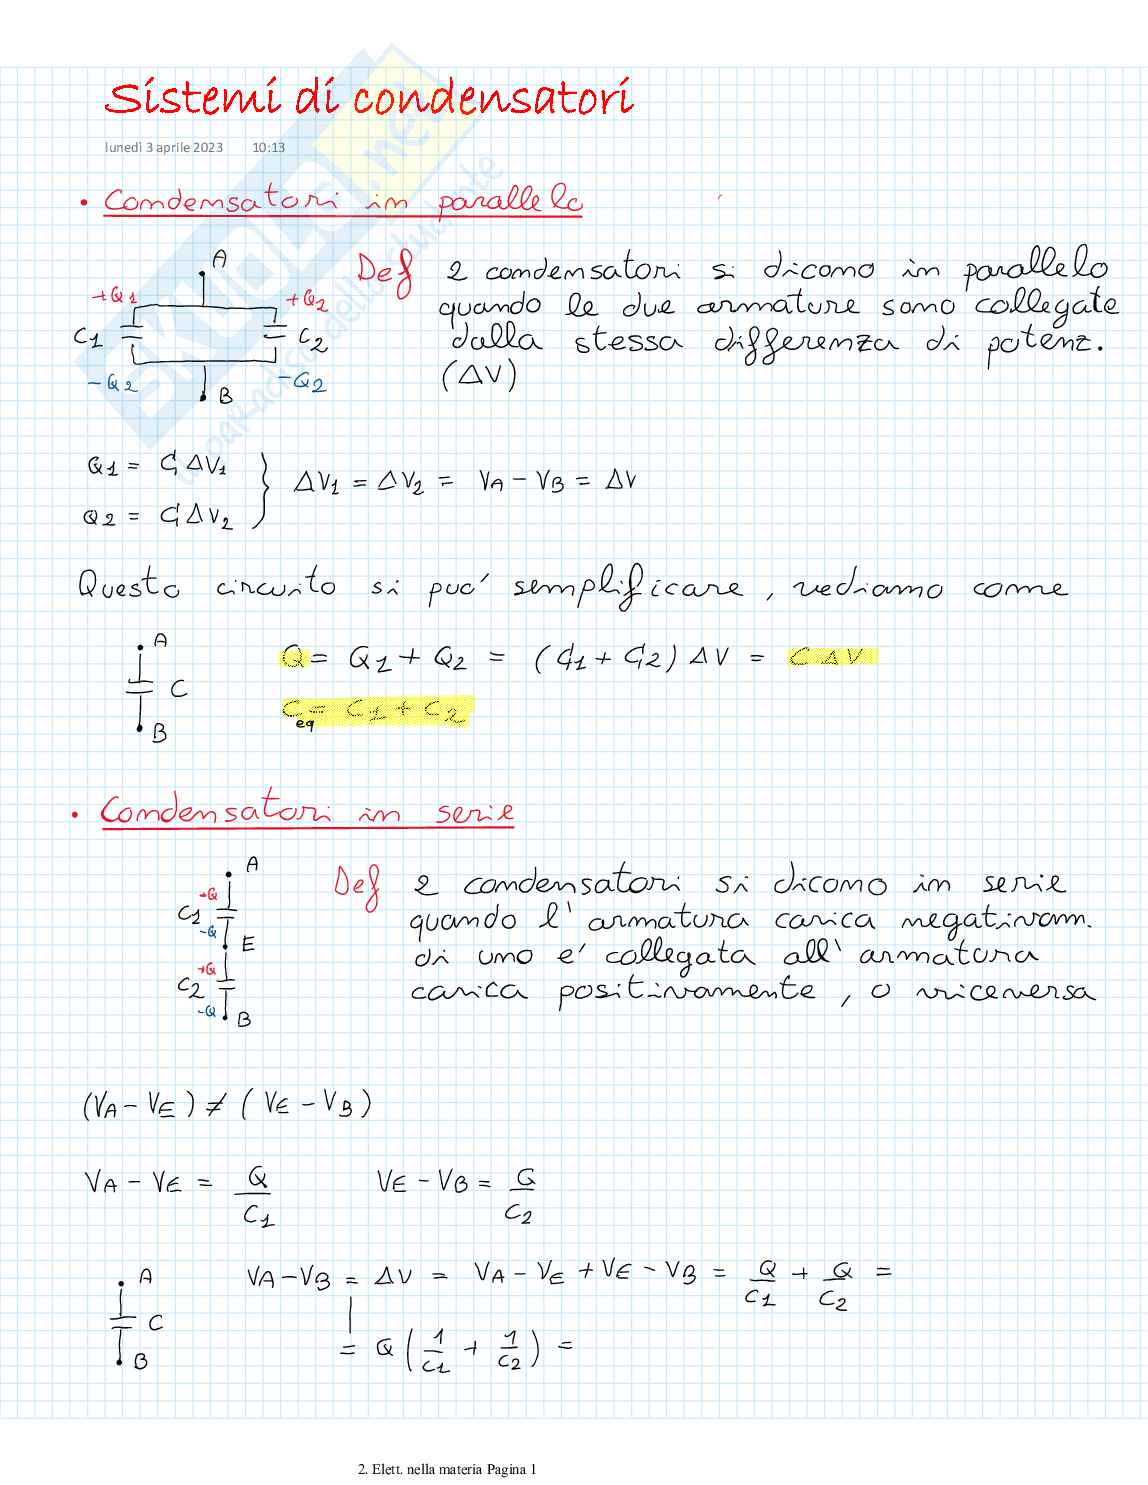 Sistemi di condensatori
lunedì 3 aprile 2023 10:13
• Condensatori in parallelo
A
+Q1 +Q2
C1 C2
-Q2 -Q2
B
Def 2 condensatori si dicono in parallelo
quando le due armature sono collegate
dalla stessa differenza di potenz.
(ΔV)
Q1 = C1 ΔV1
Q2 = C1 ΔV2
} ΔV1 = ΔV2 = VA - VB = ΔV
Questo circuito si puo' semplificare, vediamo come
A
C
B
Q = Q1 + Q2 = (C1 + C2) ΔV = C ΔV
Ceq = C1 + C2
• Condensatori in serie
A
+Q
C1
-Q
E
+Q
C2
-Q
B
Def 2 condensatori si dicono in serie
quando l'armatura carica negativam.
di uno e' collegata all'armatura
carica positivamente, o viceversa
(VA - VE) ≠ (VE - VB)
VA - VE = Q/C1 VE - VB = Q/C2
A
C
B
VA - VB = ΔV = VA - VE + VE - VB = Q/C1 + Q/C2 =
= Q (1/C1 + 1/C2) =
2. Elett. nella materia Pagina 1